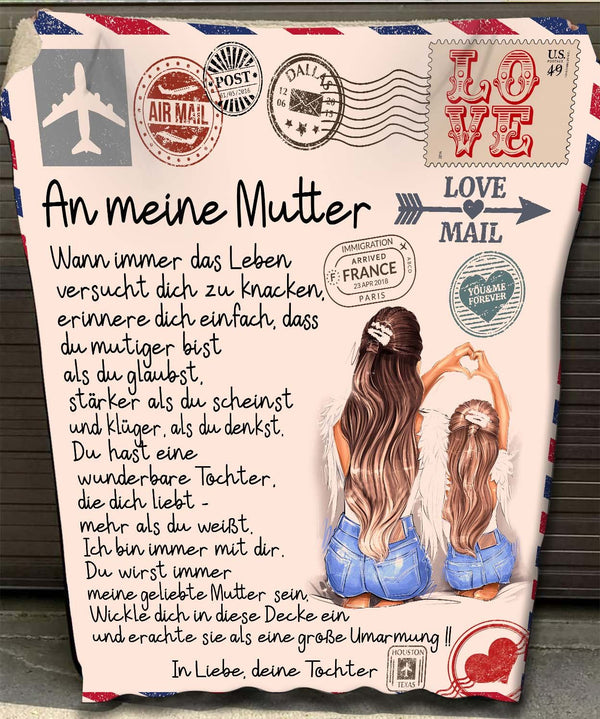 AIR MAIL
POST
31/05/2016
DALLAS
12 20
06 15
U.S.
POSTAGE
49
LO
VE
An meine Mutter
LOVE
MAIL
Wann immer das Leben
versucht dich zu knacken,
erinnere dich einfach, dass
du mutiger bist
als du glaubst,
stärker als du scheinst
und klüger, als du denkst.
Du hast eine
wunderbare Tochter,
die dich liebt -
mehr als du weißt.
Ich bin immer mit dir.
Du wirst immer
meine geliebte Mutter sein.
Wickle dich in diese Decke ein
und erachte sie als eine große Umarmung !!
In Liebe, deine Tochter
IMMIGRATION
ARRIVED
FRANCE
23 APR 2018
PARIS
ABCD
YOU&ME
FOREVER
HOUSTON
TEXAS